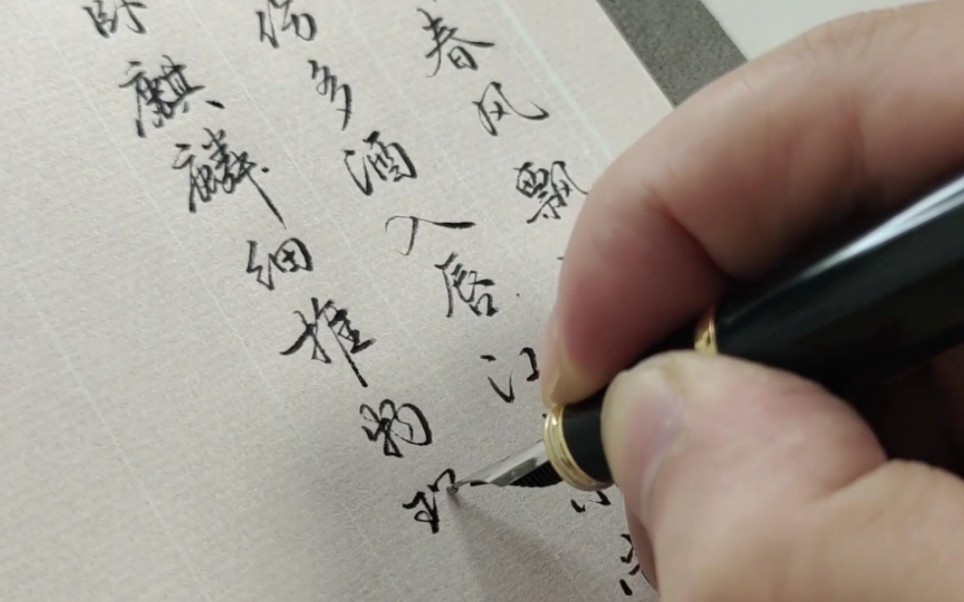 春风飘
伤多酒入唇江小
卧麒麟细推物